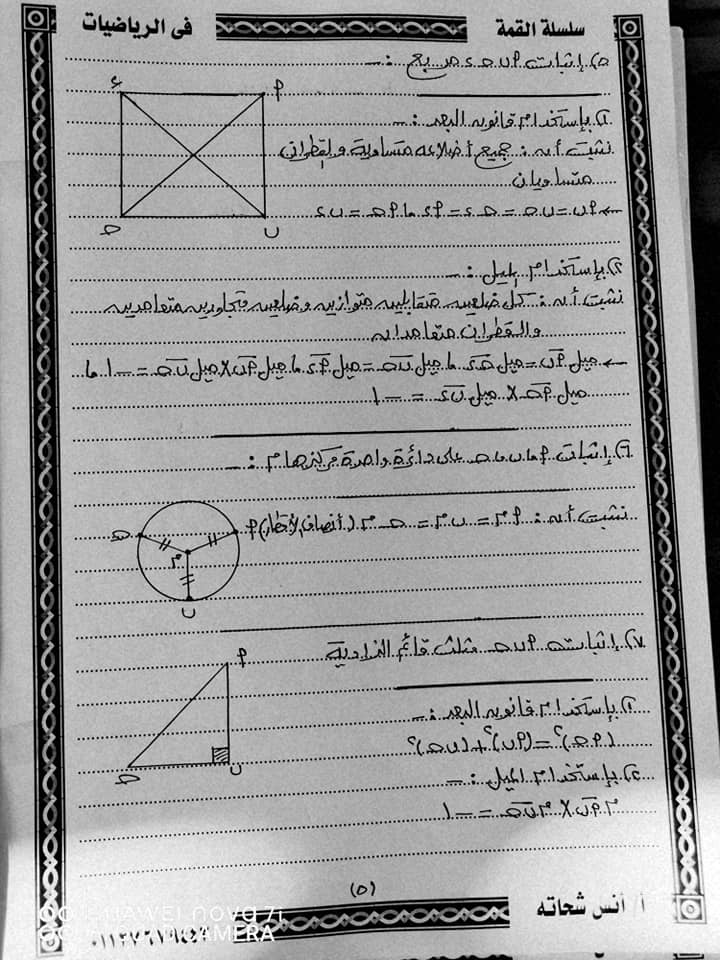 سلسلة القمة
فى الرياضيات
٥) إثبات أن ب جـ د مربع :-
د
أ
جـ
ب
١) بإستخدام قانون البعد :-
نثبت أن : جميع أضلاعه متساوية والقطران
متساويان
← أب = ب جـ = جـ د = أ د ، أ جـ = ب د
٢) بإستخدام الميل :-
نثبت أن : كل ضلعين متقابلين متوازيين وضلعين متجاورين متعامدين
والقطران متعامدان
← ميل أب = ميل جـ د ، ميل ب جـ = ميل أ د ، ميل أب × ميل ب جـ = - ١ ،
ميل أ جـ × ميل ب د = - ١
٦) إثبات أ ، ب ، جـ على دائرة واحدة مركزها م :-
نثبت أن : م أ = م ب = م جـ (أنصاف الأقطار)
أ
جـ
م
ب
٧) إثبات أ ب جـ مثلث قائم الزاوية
أ
جـ
ب
١) بإستخدام قانون البعد :-
(أ جـ)٢ = (أ ب)٢ + (ب جـ)٢
٢) بإستخدام الميل :-
م أب × م ب جـ = - ١
(٥)
أ/ أنس شحاته
HUAWEI nova 7i
CAMERA